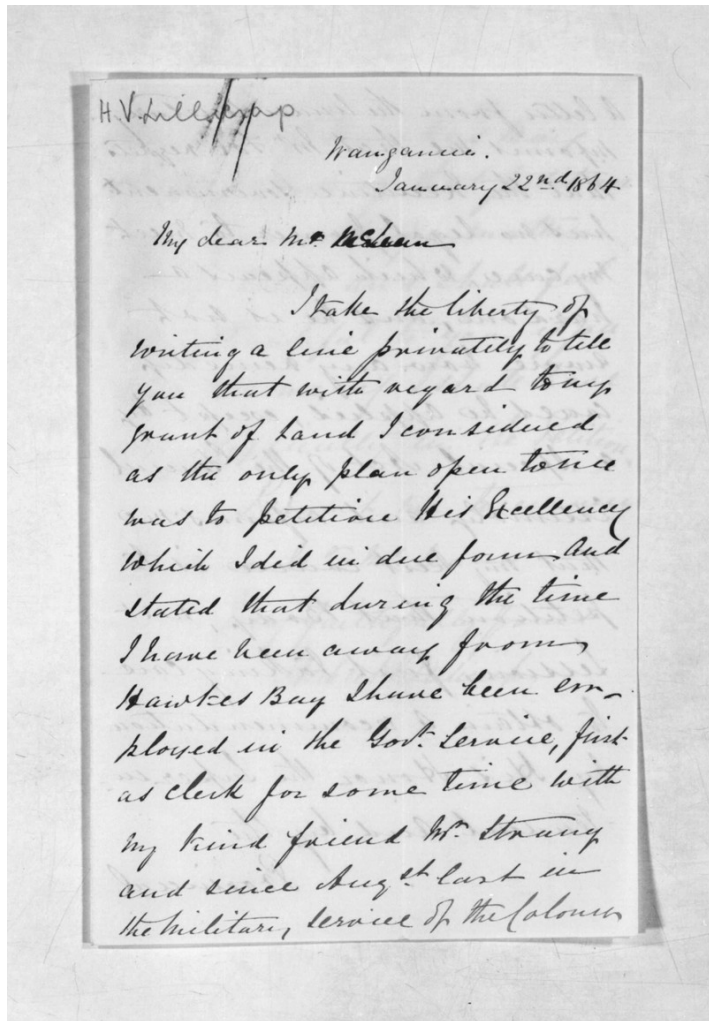 H.V. Lillicrap
Wanganui.
January 22nd 1864
My dear Mr McLean
I take the liberty of
writing a line privately to tell
you that with regard to my
grant of Land I considered
as the only plan open to me
was to petition His Excellency
which I did in due form and
stated that during the time
I have been away from
Hawkes Bay I have been em-
ployed in the Govt. Service, first
as clerk for some time with
my kind friend Mr. Strang
and since Augst. last in
the Military Service of the Colony